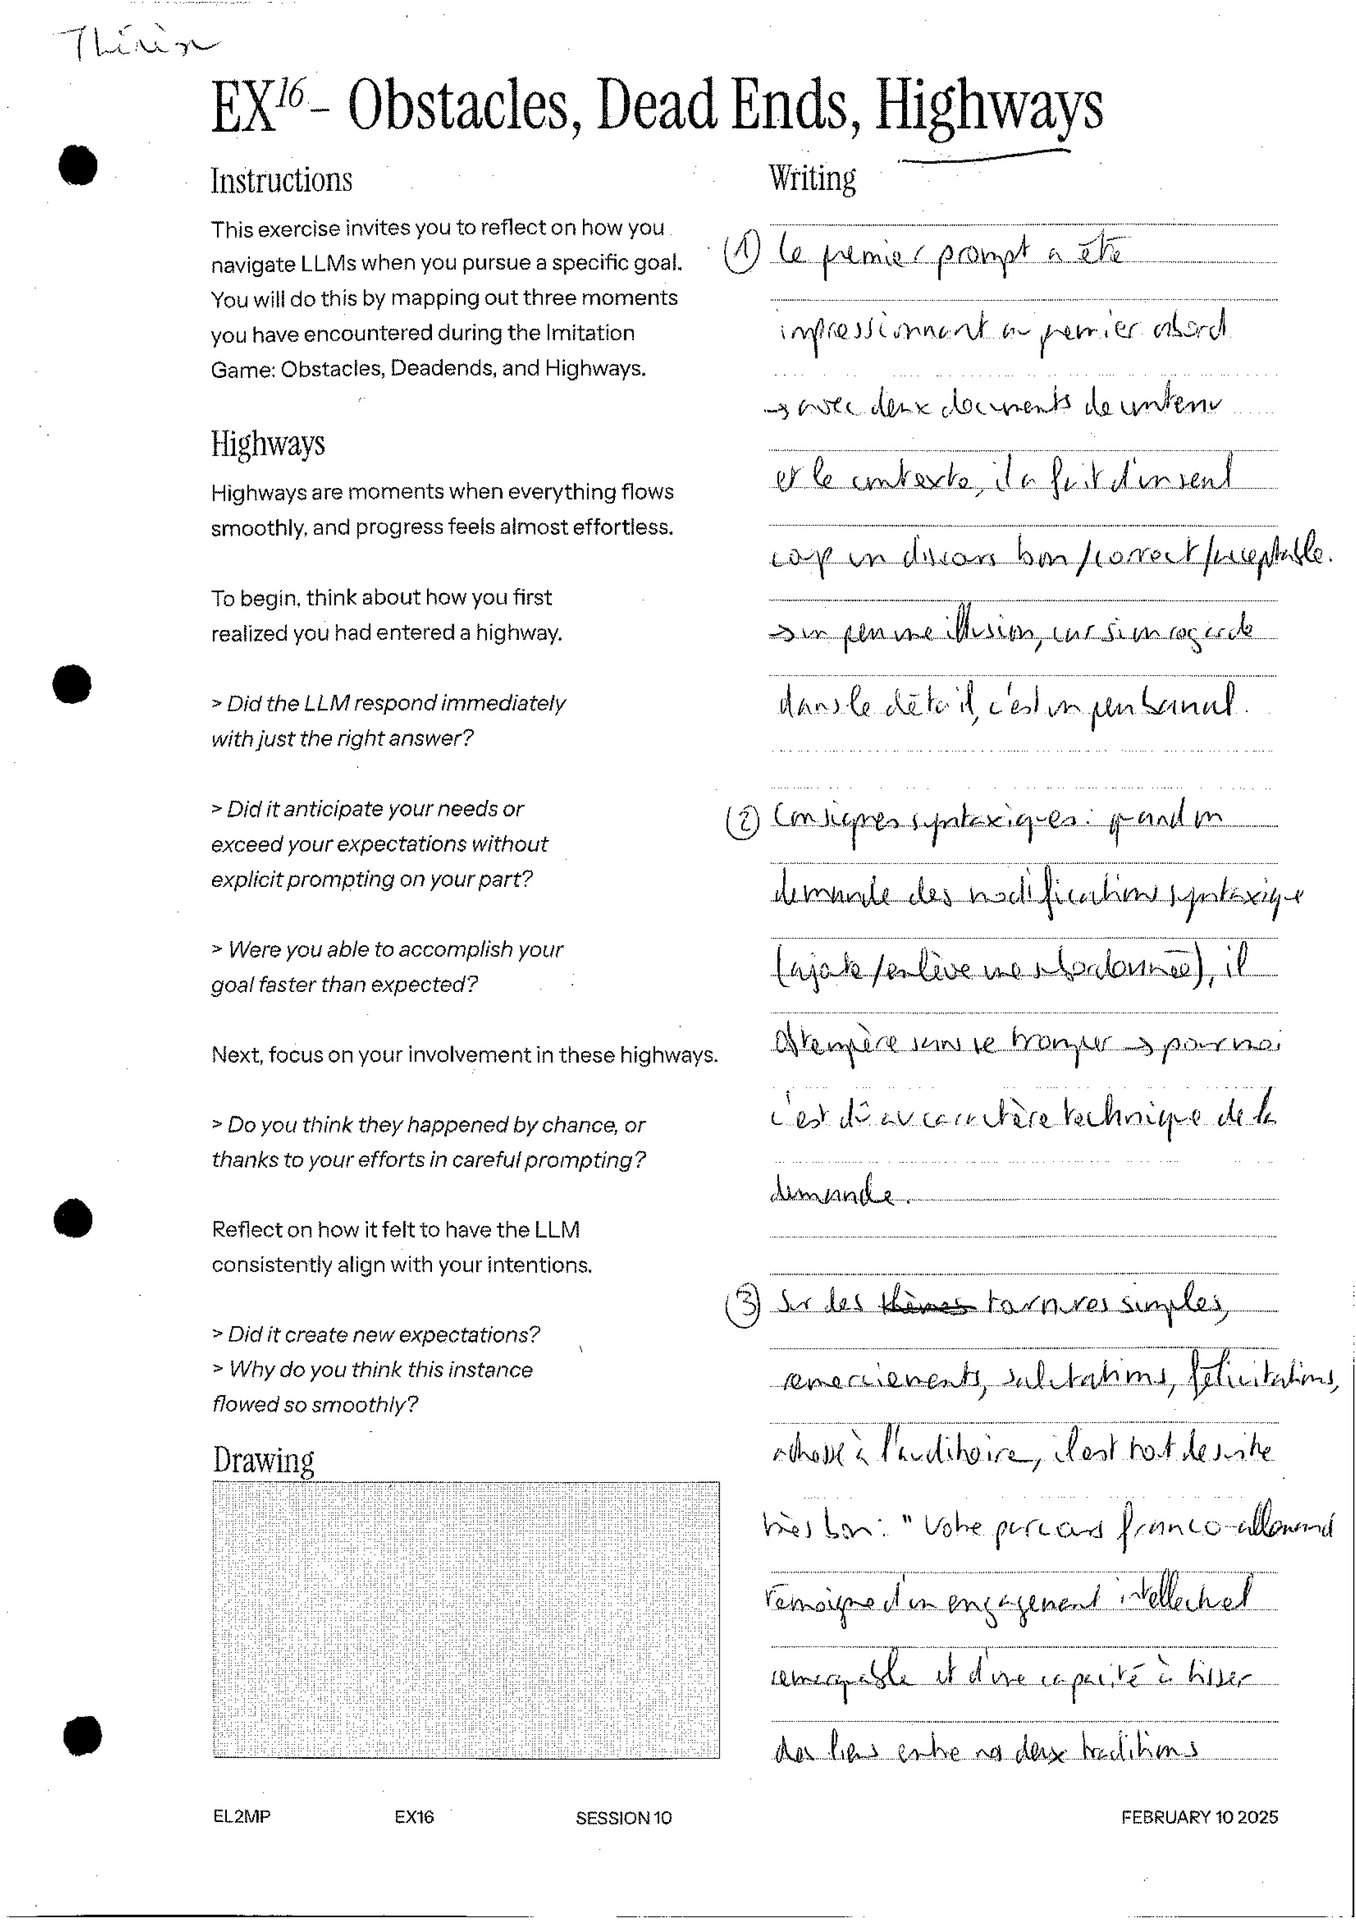 EX16 – Obstacles, Dead Ends, Highways
Instructions
This exercise invites you to reflect on how you
navigate LLMs when you pursue a specific goal.
You will do this by mapping out three moments
you have encountered during the Imitation
Game: Obstacles, Deadends, and Highways.
Highways
Highways are moments when everything flows
smoothly, and progress feels almost effortless.
To begin, think about how you first
realized you had entered a highway.
> Did the LLM respond immediately
with just the right answer?
> Did it anticipate your needs or
exceed your expectations without
explicit prompting on your part?
> Were you able to accomplish your
goal faster than expected?
Next, focus on your involvement in these highways.
> Do you think they happened by chance, or
thanks to your efforts in careful prompting?
Reflect on how it felt to have the LLM
consistently align with your intentions.
> Did it create new expectations?
> Why do you think this instance
flowed so smoothly?
Drawing
Writing
① Le premier prompt a été
impressionnant au premier abord
→ avec deux documents de contenu
et le contexte, il a fait d'un seul
coup un discours bon/correct/acceptable.
→ un peu une illusion, car si on regarde
dans le détail, c'est un peu banal.
② Consignes syntaxiques : quand on
demande des modifications syntaxique
(ajoute/enlève une subordonnée), il
obtempère sans se tromper → pour moi
c'est dû au caractère technique de la
demande.
③ Sur des thèmes tournures simples,
remerciements, salutations, félicitations,
adresse à l'auditoire, il est tout de suite
très bon : "Votre parcours franco-allemand
témoigne d'un engagement intellectuel
remarquable et d'une capacité à tisser
des liens entre nos deux traditions
EL2MP EX16 SESSION 10 FEBRUARY 10 2025